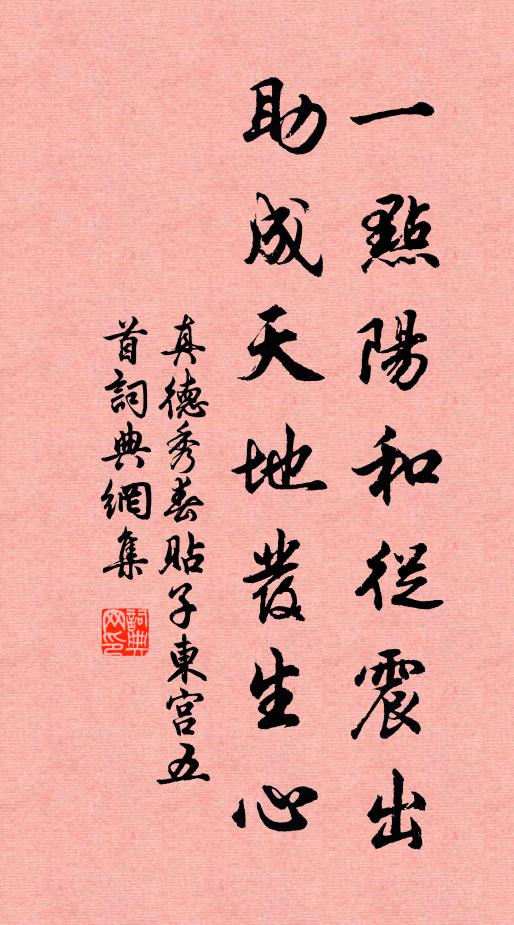 一點陽和從震出
助成天地發生心
真德秀春貼子東宮五
首詞典網集
詞典網印